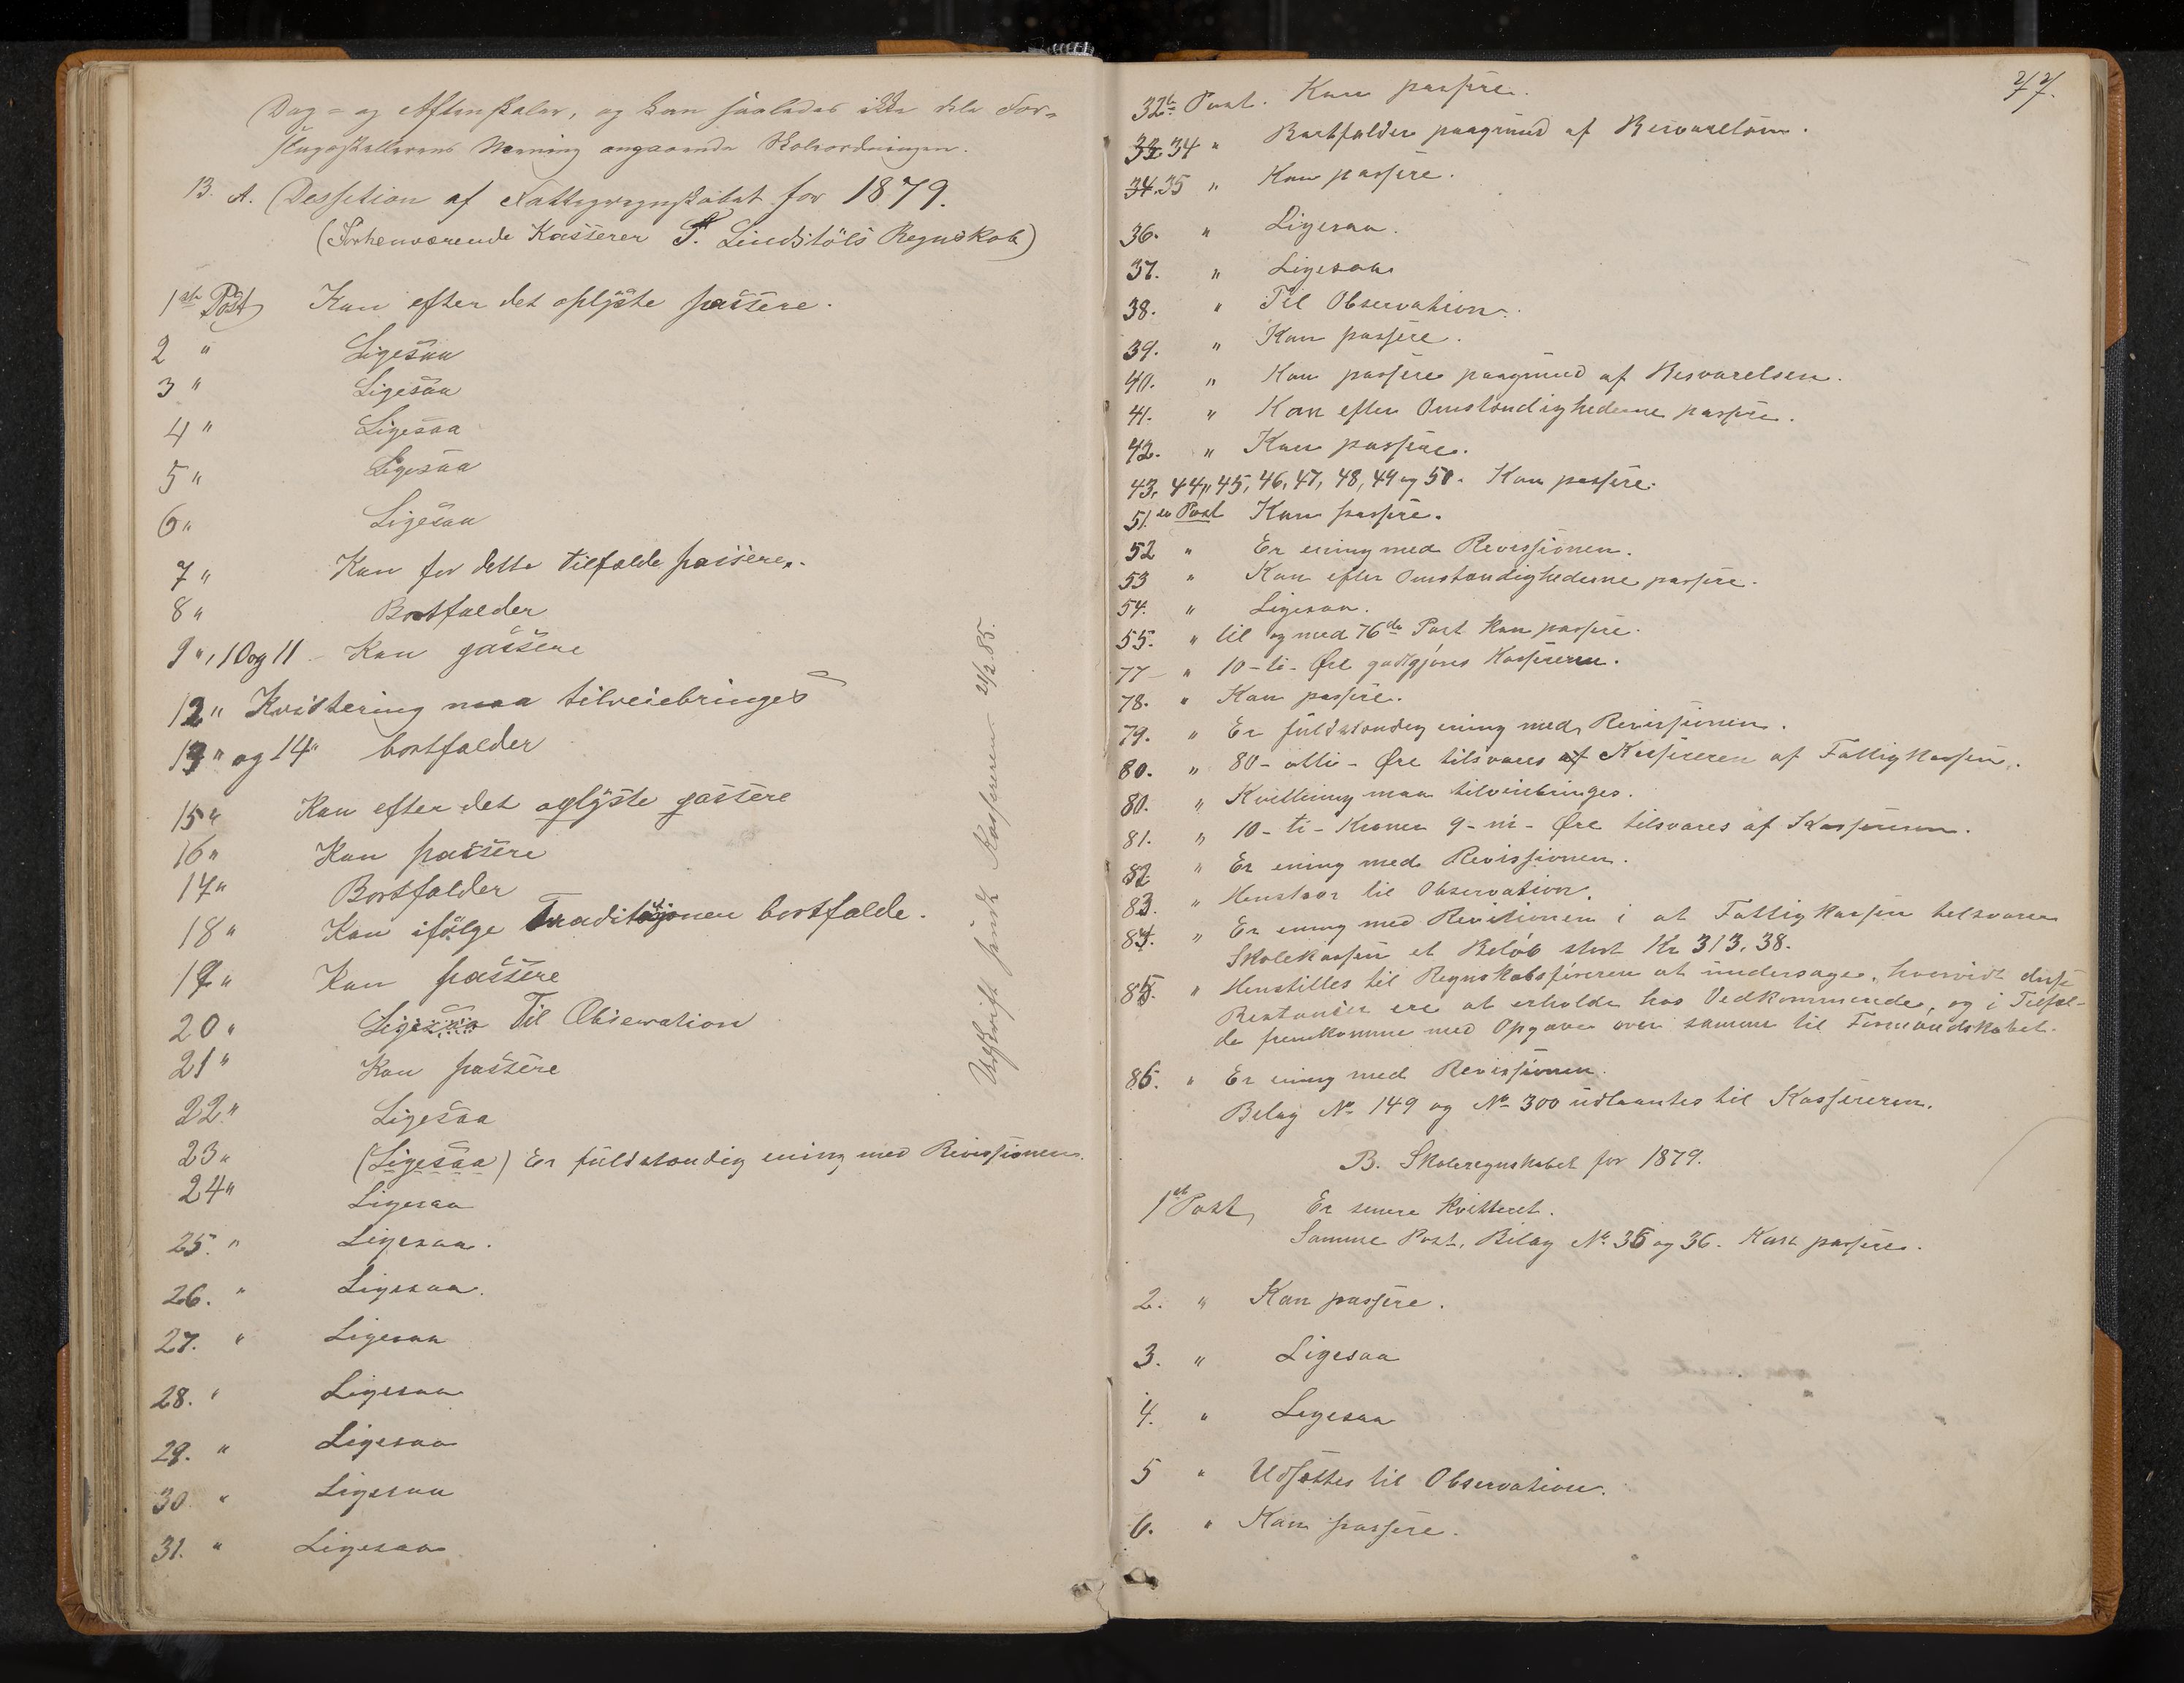 Dag- og Aftenskoler, og kan saaledes ikke dele For-
slagsstillerens Mening angaaende Skoleordningen.
B. A. Dessition af Fattigregnskabet for 1879.
(Forhenværende Kasserer P. Lindstöls Regnskab)
1ste Post Kan efter det oplyste passere.
2 " Ligesaa
3 " Ligesaa
4 " Ligesaa
5 " Ligesaa
6 " Ligesaa
7 " Kan for dette tilfælde passere.
8 " Bortfalder
9 ", 10 og 11 - Kan passere
12 " Kvittering maa tilveiebringes
13 " og 14 " bortfalder
15 " Kan efter det oplyste passere
16 " Kan passere
17 " Bortfalder
18 " Kan ifölge bortfalde.
19 " Kan passere
20 " Ligesaa Til Observation
21 " Kan passere
22 " Ligesaa
23 " (Ligesaa) Er fuldstændig enig med Revissionen.
24 " Ligesaa
25. " Ligesaa.
26. " Ligesaa.
27. " Ligesaa
28. " Ligesaa
29. " Ligesaa
30. " Ligesaa
31. " Ligesaa
Udskrift sendt Kassereren 21/2 85.
77.
32te Post. Kan passere.
33 34 " Bortfalder paagrund af Besvarelsen.
34. 35 " Kan passere.
36. " Ligesaa.
37. " Ligesaa
38. " Til Observation.
39. " Kan passere.
40. " Kan passere paagrund af Besvarelsen.
41. " Kan efter Omstændighederne passere.
42. " Kan passere.
43, 44, 45, 46, 47, 48, 49 og 50. Kan passere.
51. de Post Kan passere.
52 " Er ening med Revissionen.
53 " Kan efter Omstændighederne passere.
54. " Ligesaa.
55. " til og med 76de Post kan passere.
77 - " 10 - ti - Øre godtgjøres Kassereren.
78. " Kan passere.
79. " Er fuldstændig ening med Revissionen.
80. " 80 - otti - Øre tilsvares af Kassereren af Fattigkassen.
80. " Kvittering maa tilveiebringes.
81. " 10 - ti - Kroner 9 - ni - Øre tilsvares af Kassereren.
82 " Er ening med Revissionen.
83. " Henstaar til Observation.
84. " Er ening med Revitionen i at Fattigkassen tilsvarer
Skolekassen et Beløb stort Kr 313,38.
85. " Henstilles til Regnskabsføreren at undersøge, hvorvidt disse
Restancer ere at erholde hos Vedkommende, og i Tilfæl-
de fremkomme med Opgave over samme til Formandskabet.
86. " Er ening med Revissionen.
Belag No 149 og No 300 udlaantes til Kassereren.
B. Skoleregnskabet for 1879.
1st Post Er senere kvitteret.
Samme Post, Bilag No 35 og 36. Kan passere.
2. " Kan passere.
3. " Ligesaa
4. " Ligesaa
5 " Udsættes til Observation.
6. " Kan passere.